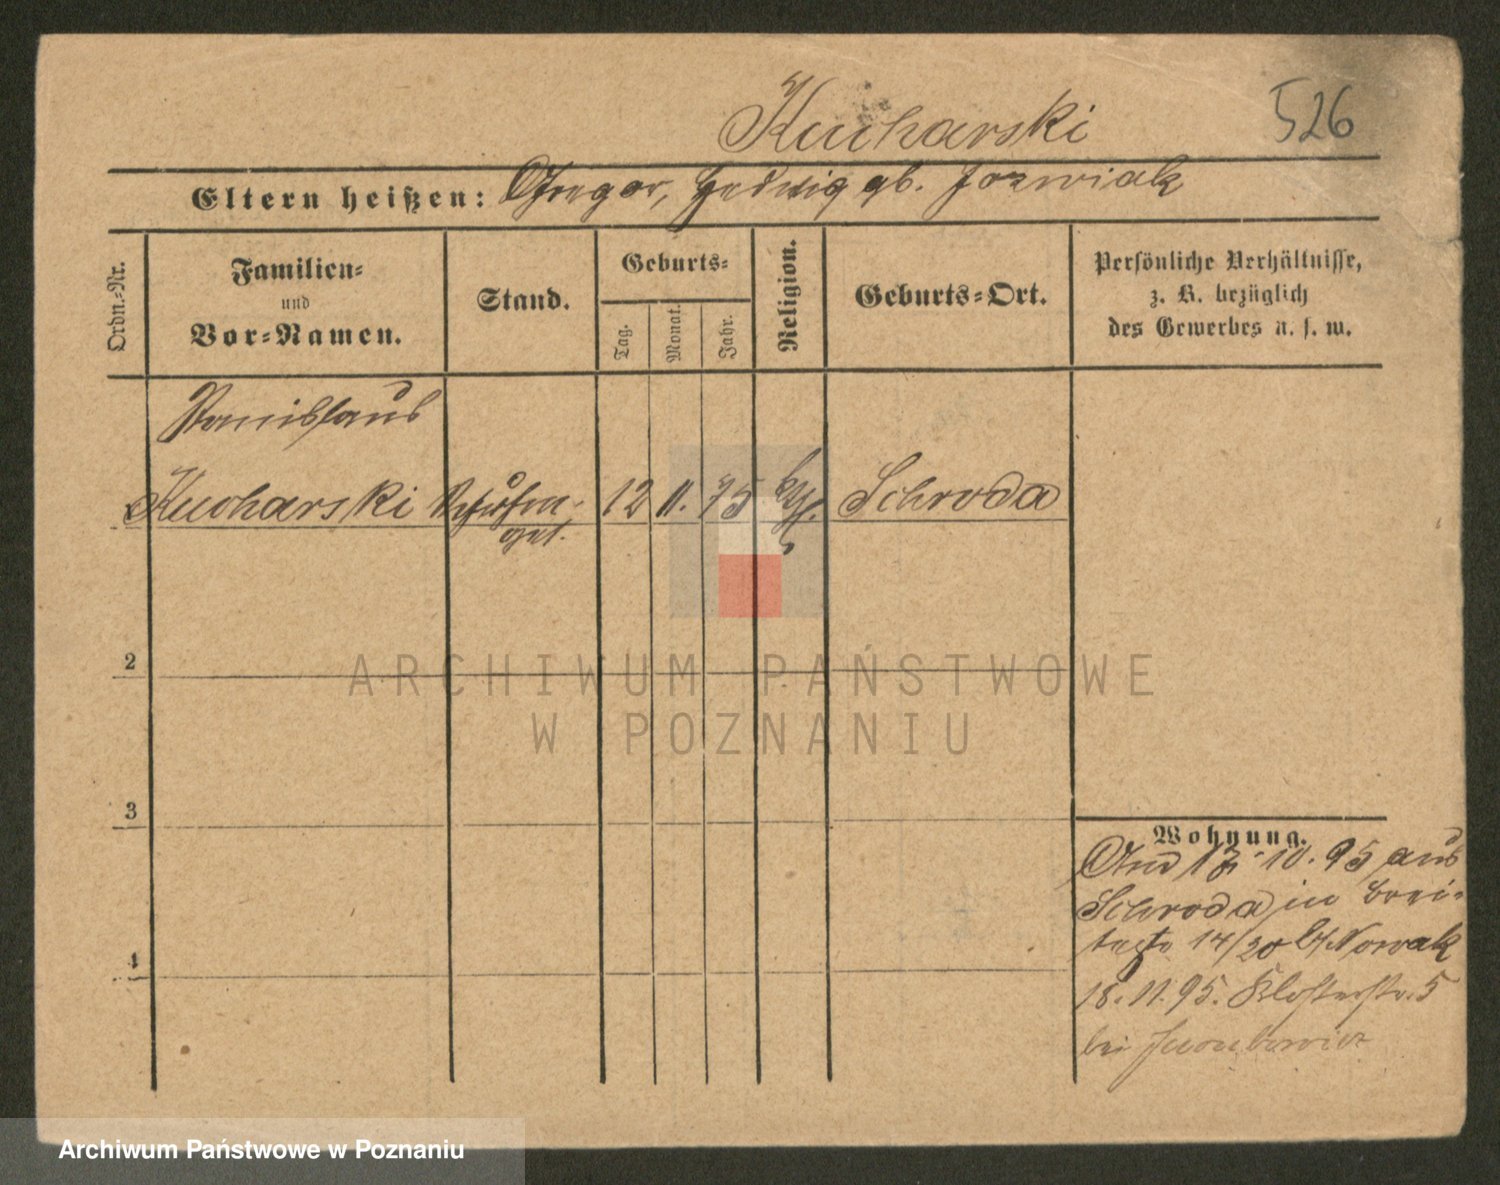 Kucharski 526
Eltern heißen: Gregor, Hedwig gb. Jozwiak
Ordn.-Nr.
Familien-
und
Vor-Namen.
Stand.
Geburts-
Tag.
Monat.
Jahr.
Religion.
Geburts-Ort.
Persönliche Verhältnisse,
z. B. bezüglich
des Gewerbes u. s. w.
Stanislaus
Kucharski Schuhm.- 12 11. 75 kth. Schroda
gel.
2
3
4
Wohnung.
10. 95 aus
Schroda in Brei-
testr 14/20 bf Nowak
18. 11. 95. Klosterstr. 5
bei
ARCHIWUM PAŃSTWOWE
W POZNANIU
Archiwum Państwowe w Poznaniu